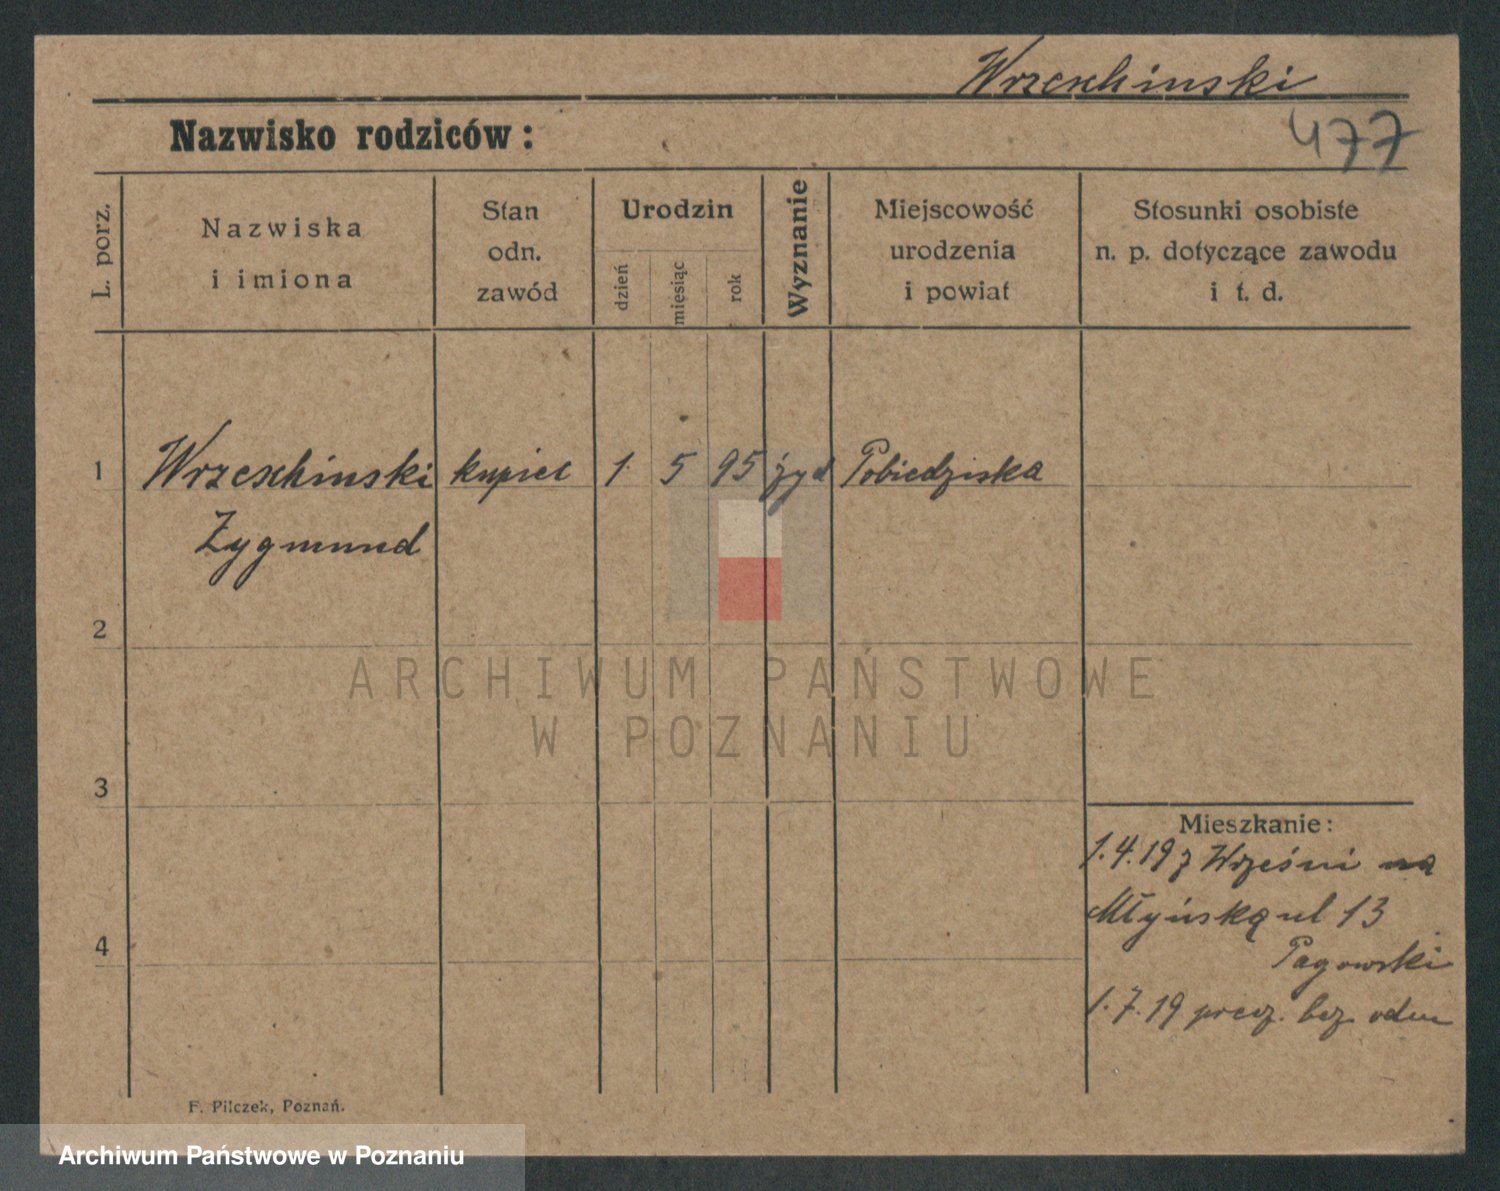 Wrzeschinski
477
Nazwisko rodziców:
L. porz.
Nazwiska
i imiona
Stan
odn.
zawód
Urodzin
dzień
miesiąc
rok
Wyznanie
Miejscowość
urodzenia
i powiat
Stosunki osobiste
n. p. dotyczące zawodu
i t. d.
1 Wrzeschinski kupiec 1 5 95 żyd Pobiedziska
Zygmund
2
ARCHIWUM PAŃSTWOWE
W POZNANIU
3
Mieszkanie:
1.4.19 z Wrześni na
Młyńską ul 13
Pagowski
4
1.7.19 precz. bez odm
F. Pilczek, Poznań.
Archiwum Państwowe w Poznaniu